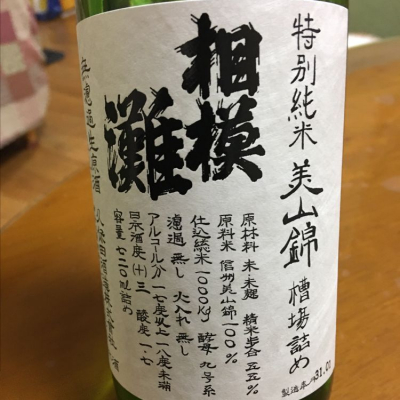 特別純米 美山錦 槽場詰め
相模灘
原材料 米・米麹 精米歩合 五五%
原料米 信州美山錦 一〇〇%
仕込総米 一〇〇〇kg 酵母 九号系
濾過 無し 火入れ 無し
アルコール分 一七度以上一八度未満
日本酒度 (+)三 酸度 一・七
容量 七二〇ml詰め
無濾過生原酒 久保田酒造株式会社
製造年月 31.01